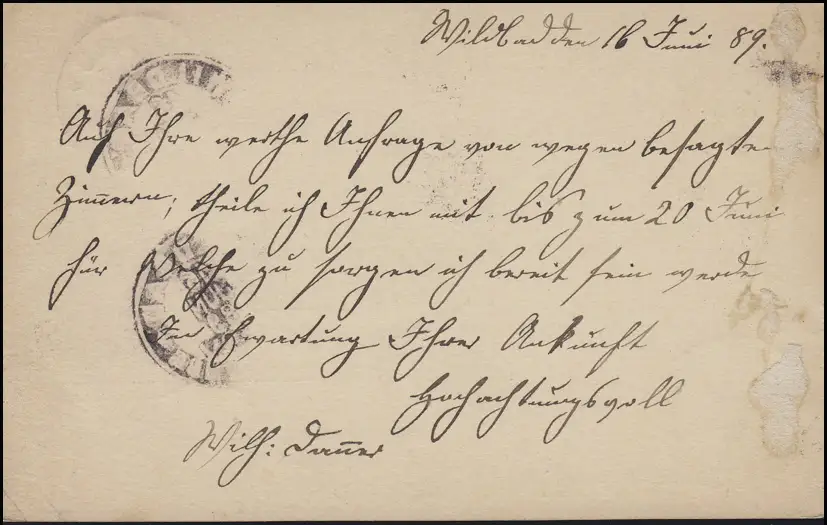 Wildbad den 16 Juni 89.
Auf Ihre werthe Anfrage von wegen besagten
Zimmern; theile ich Ihnen mit bis zum 20 Juni
für Welche zu sorgen ich bereit sein werde
In Erwartung Ihrer Ankunft
Hochachtungsvoll
Wilh: Danner